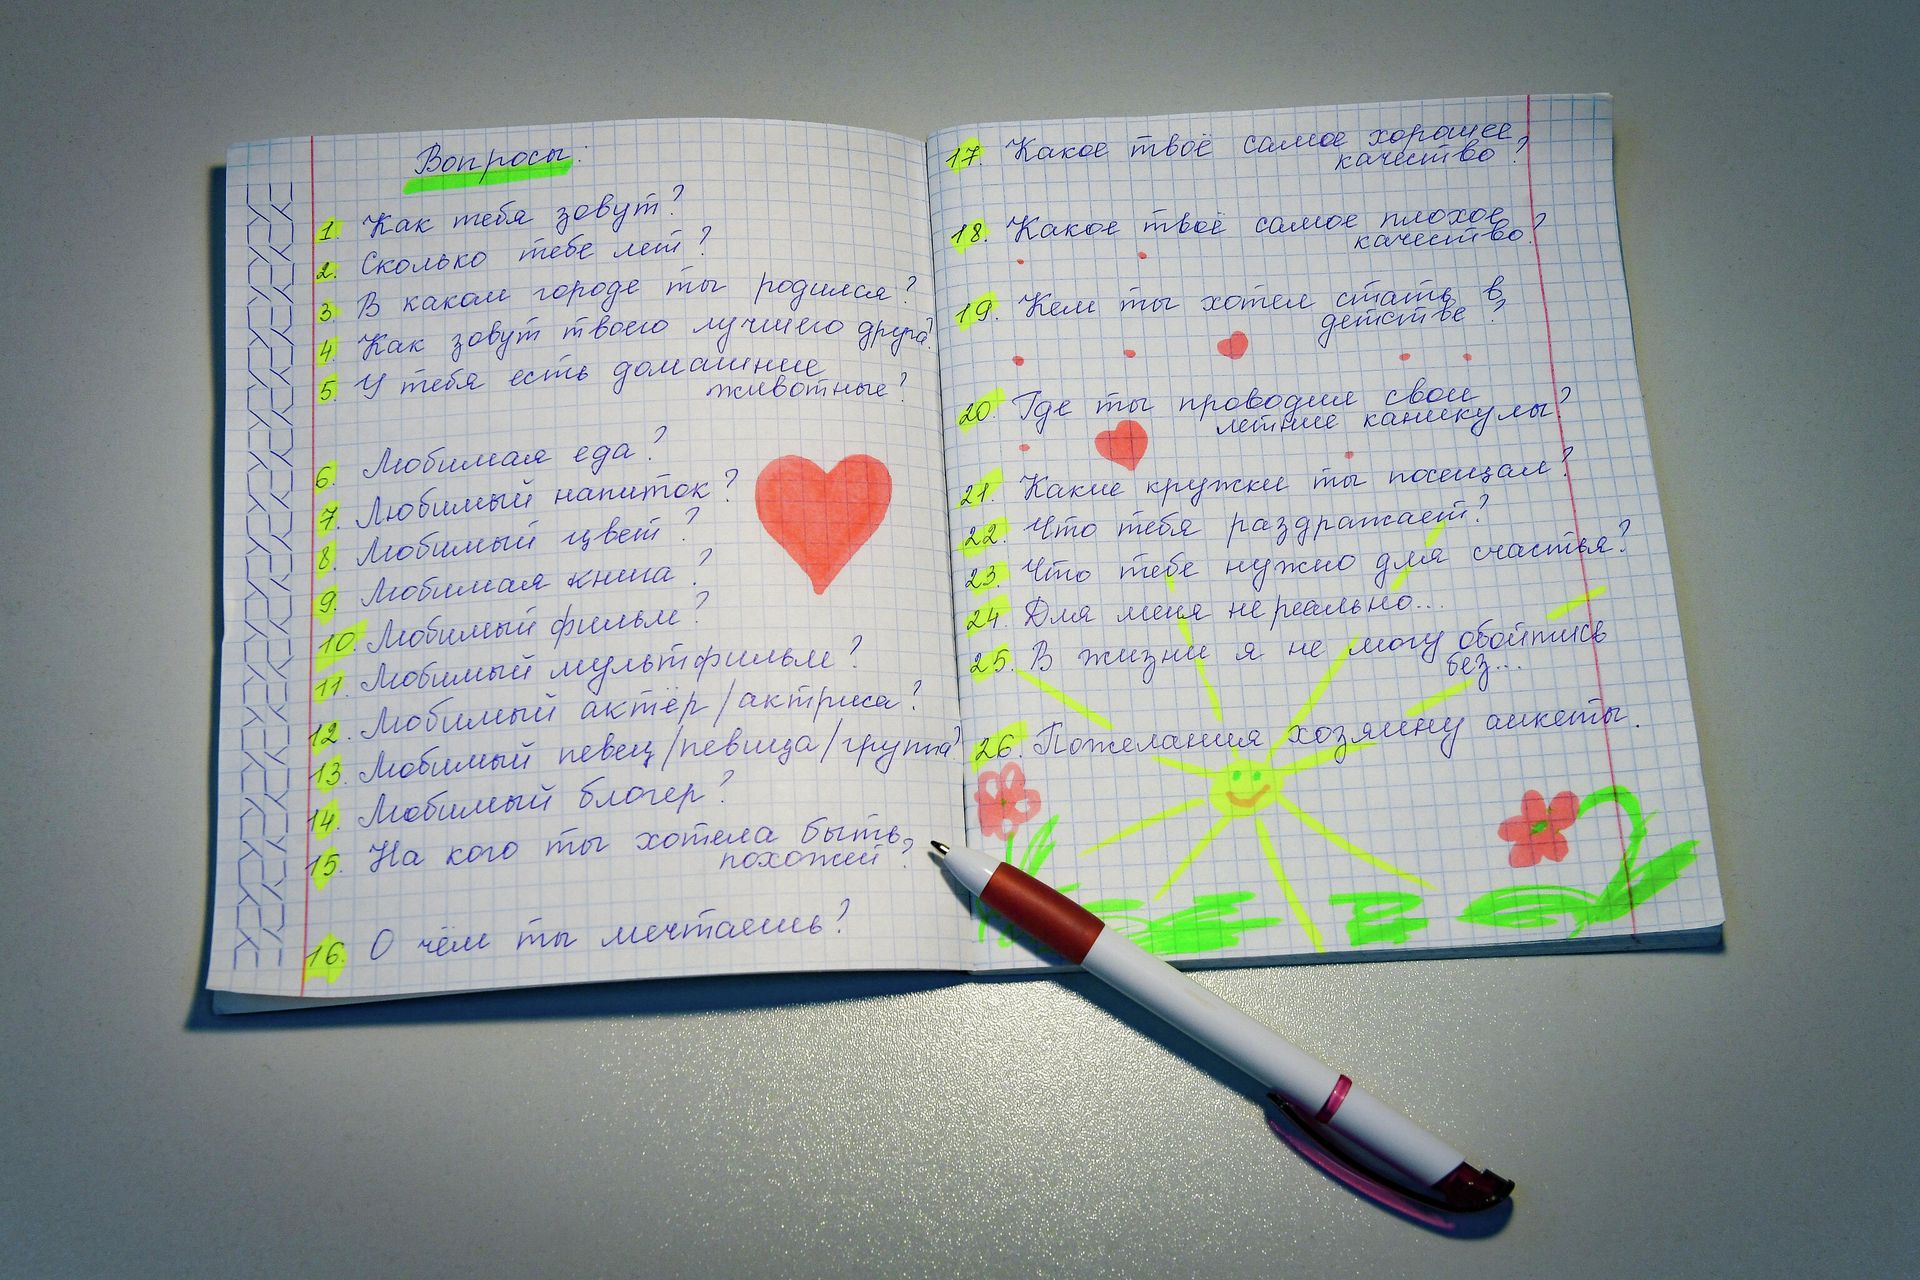 Вопросы:
1. Как тебя зовут?
2. Сколько тебе лет?
3. В каком городе ты родился?
4. Как зовут твоего лучшего друга?
5. У тебя есть домашние
животные?
6. Любимая еда?
7. Любимый напиток?
8. Любимый цвет?
9. Любимая книга?
10. Любимый фильм?
11. Любимый мультфильм?
12. Любимый актёр/актриса?
13. Любимый певец/певица/группа?
14. Любимый блогер?
15. На кого ты хотела быть
похожей?
16. О чём ты мечтаешь?
17. Какое твоё самое хорошее
качество?
18. Какое твоё самое плохое
качество?
19. Кем ты хотел стать в
детстве?
20. Где ты проводил свои
летние каникулы?
21. Какие кружки ты посещал?
22. Что тебя раздражает?
23. Что тебе нужно для счастья?
24. Для меня нереально...
25. В жизни я не могу обойтись
без...
26. Пожелания хозяину анкеты.